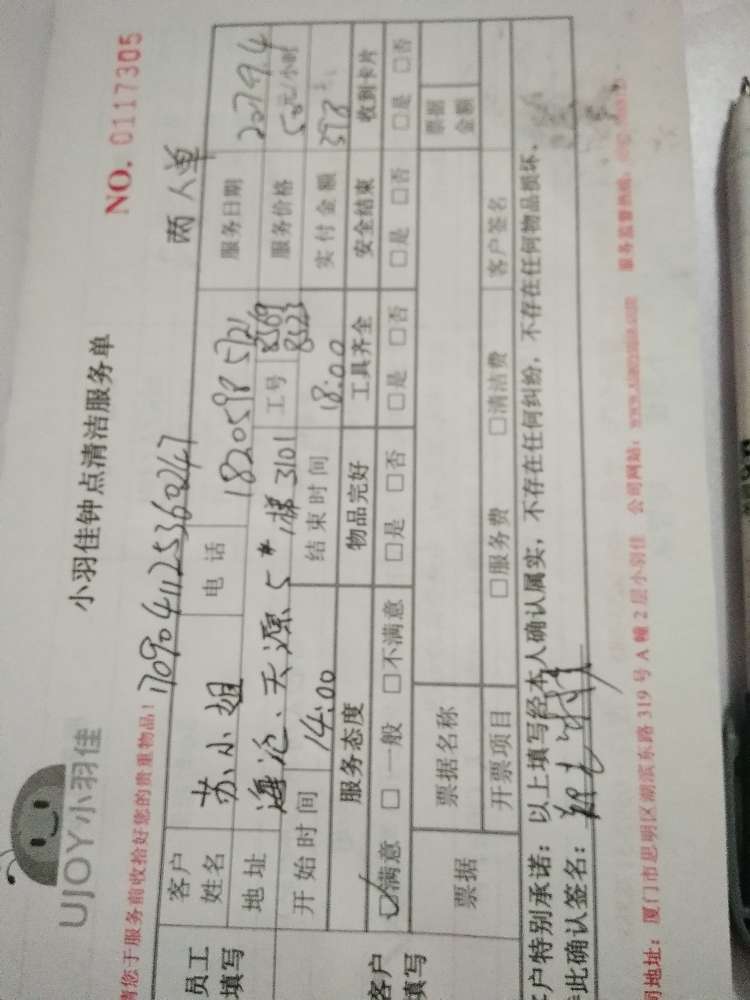 UJOY小羽佳
小羽佳钟点清洁服务单
NO. 0117305
请您于服务前收拾好您的贵重物品!
1709041125360247
两人单
员工
填写
客户
姓名
苏小姐
电话
18205985721
服务日期
2017 9.4
地址
海沧、天源5# 1梯3101
工号
8569
8523
服务价格
50元/小时
开始时间
14:00
结束时间
18:00
实付金额
客户
填写
服务态度
物品完好
工具齐全
安全结束
收到卡片
☑满意 □一般 □不满意
□是 □否
□是 □否
□是 □否
□是 □否
票据
票据名称
票据
金额
开票项目
□服务费 □清洁费
客户签名
客户特别承诺:以上填写经本人确认属实,不存在任何纠纷,不存在任何物品损坏,
特此确认签名:
司地址:厦门市思明区湖滨东路319号A幢2层小羽佳 公司网站: 服务监督热线: